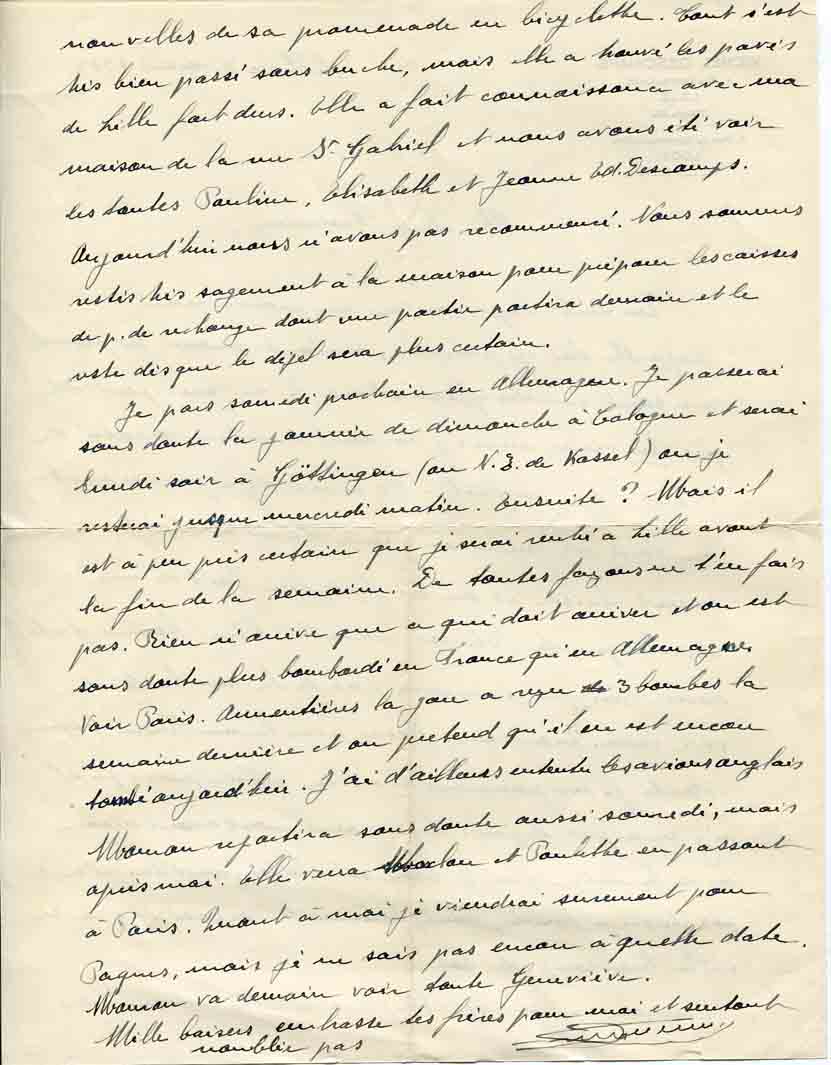 nouvelles de sa promenade en bicyclette. Tout s'est
très bien passé sans buche, mais elle a trouvé les pavés
de Lille fort durs. Elle a fait connaissance avec ma
maison de la rue St Gabriel et nous avons été voir
les tantes Pauline, Elisabeth et Jeanne Ed. Descamps.
Aujourd'hui nous n'avons pas recommencé. Nous sommes
restés très sagement à la maison pour préparer les caisses
de p. de rechange dont une partie partira demain et le
reste dès que le dégel sera plus certain.
Je pars samedi prochain en Allemagne. Je passerai
sans doute la journée de dimanche à Cologne et serai
lundi soir à Göttingen (au N.E. de Kassel) où je
resterai jusque mercredi matin. Ensuite ? Mais il
est à peu près certain que je serai rentré à Lille avant
la fin de la semaine. De toutes façons ne t'en fais
pas. Rien n'arrive que ce qui doit arriver et on est
sans doute plus bombardé en France qu'en Allemagne.
Voir Paris. Armentières la gare a reçu 3 bombes la
semaine dernière et on prétend qu'il en est encore
tombé aujourd'hui. J'ai d'ailleurs entendu les avions anglais
Maman repartira sans doute aussi samedi, mais
après moi. Elle verra et Paulette en passant
à Paris. Quant à moi je viendrai surement pour
Paques, mais je ne sais pas encore à quelle date.
Maman va demain voir tante Geneviève.
Mille baisers, embrasse tes frères pour moi et surtout
n'oublie pas